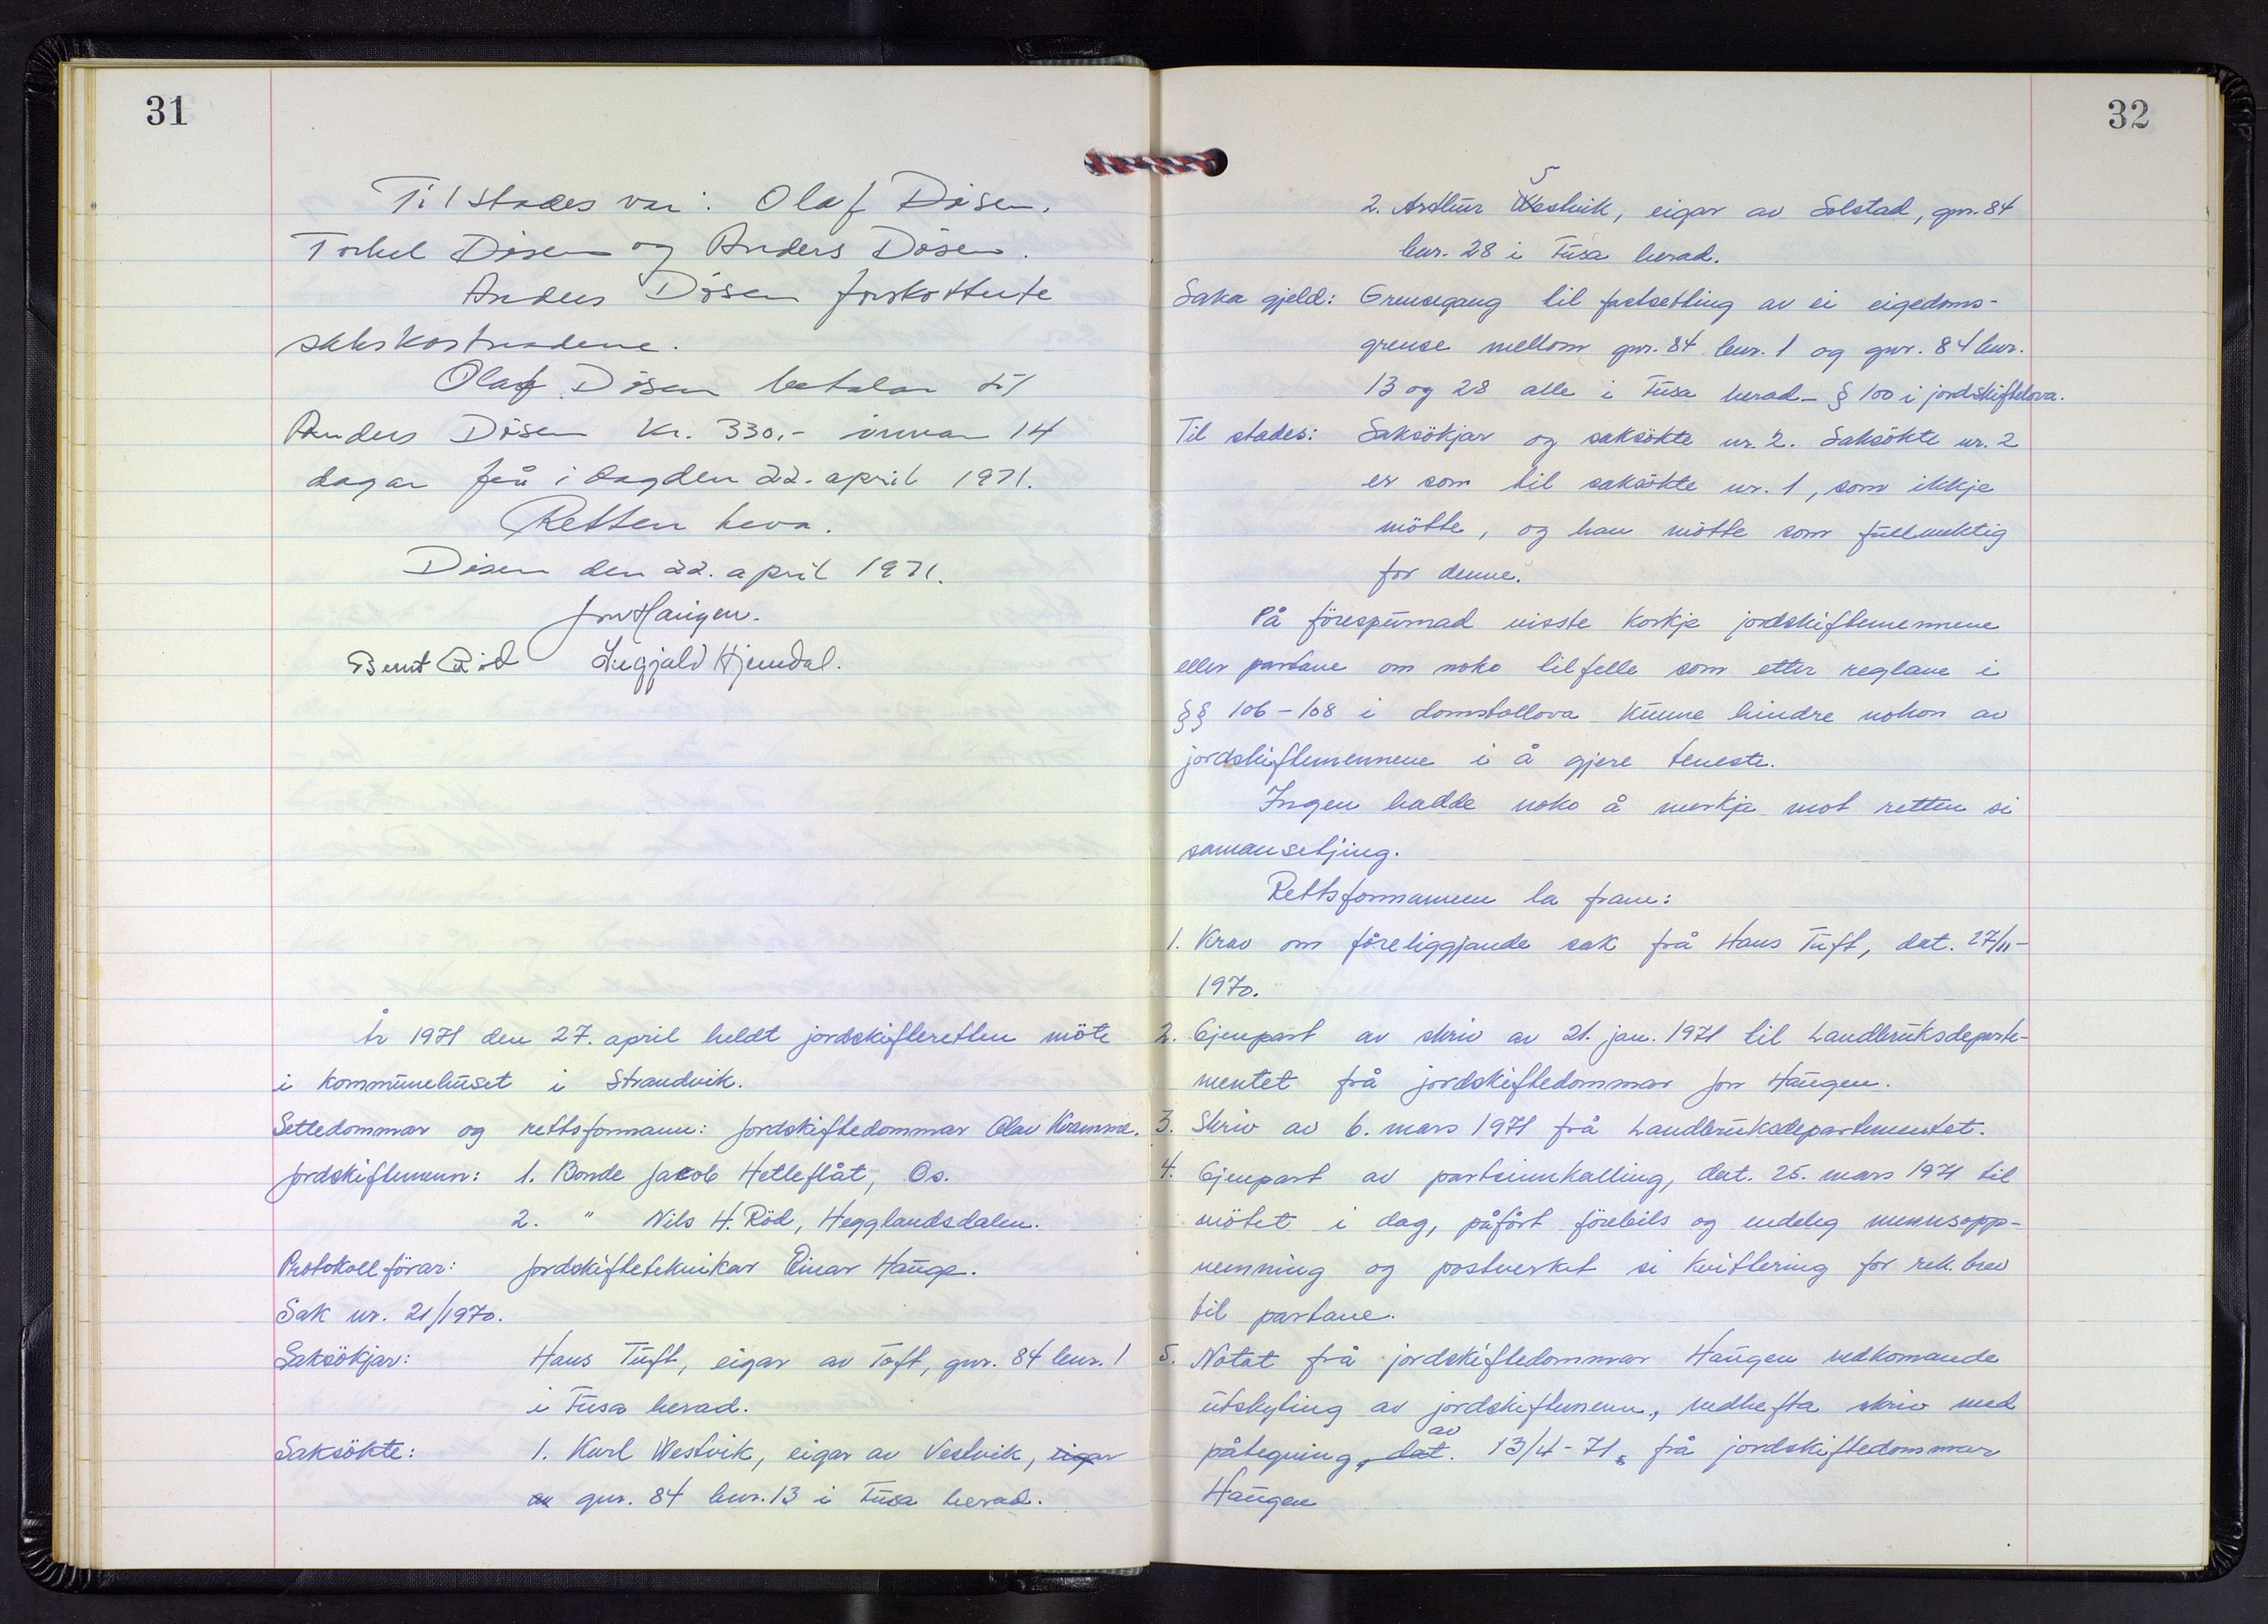 31
Til stades var: Olaf Døsen,
Torkel Døsen og Anders Døsen.
Anders Døsen forskotterte
sakskostnadene.
Olaf Døsen betalar til
Anders Døsen kr. 330,- innan 14
dagar frå i dag den 22. april 1971.
Retten heva.
Døsen den 22. april 1971.
Jon Haugen.
Bernt Röd Ingjald Hjemdal.
År 1971 den 27. april heldt jordskifteretten möte
i kommunehuset i Strandvik.
Settedommar og rettsformann: Jordskiftedommar Olav Kvamme.
Jordskiftemenn: 1. Bonde Jacob Hetleflåt, Os.
2. " Nils H. Röd, Hegglandsdalen.
Protokollförar: Jordskifteteknikar Einar Hauge.
Sak nr. 21/1970.
Saksökjar: Hans Tuft, eigar av Toft, gnr. 84 bnr. 1
i Fusa herad.
Saksökte: 1. Karl Westvik, eigar av Vestvik, eigar
av gnr. 84 bnr. 13 i Fusa herad.
32
2. Arthur Westvik, eigar av Solstad, gnr. 84
bnr. 28 i Fusa herad.
Saka gjeld: Grensegang til fastsetting av ei eigedoms-
grense mellom gnr. 84 bnr. 1 og gnr. 84 bnr.
13 og 28 alle i Fusa herad - § 100 i jordskiftelova.
Til stades: Saksökjar og saksökte nr. 2. Saksökte nr. 2
er son til saksökte nr. 1, som ikkje
mötte, og han mötte som fullmektig
for denne.
På förespurnad visste korkje jordskiftemennene
eller partane om noko tilfelle som etter reglane i
§§ 106-108 i domstollova kunne hindre nokon av
jordskiftemennene i å gjere teneste.
Ingen hadde noko å merkje mot retten si
samansetjing.
Rettsformannen la fram:
1. Krav om föreliggjande sak frå Hans Tuft, dat. 27/11-
1970.
2. Gjenpart av skriv av 21. jan. 1971 til Landbruksdeparte-
mentet frå jordskiftedommar Jon Haugen.
3. Skriv av 6. mars 1971 frå Landbruksdepartementet.
4. Gjenpart av partsinnkalling, dat. 25. mars 1971 til
mötet i dag, påfört förebils og endeleg mennsopp-
nemning og postverket si kvittering for rek. brev
til partane.
5. Notat frå jordskiftedommar Haugen vedkomande
utskyting av jordskiftemenn, vedhefta skriv med
påtegning, dat. av 13/4-71, frå jordskiftedommar
Haugen